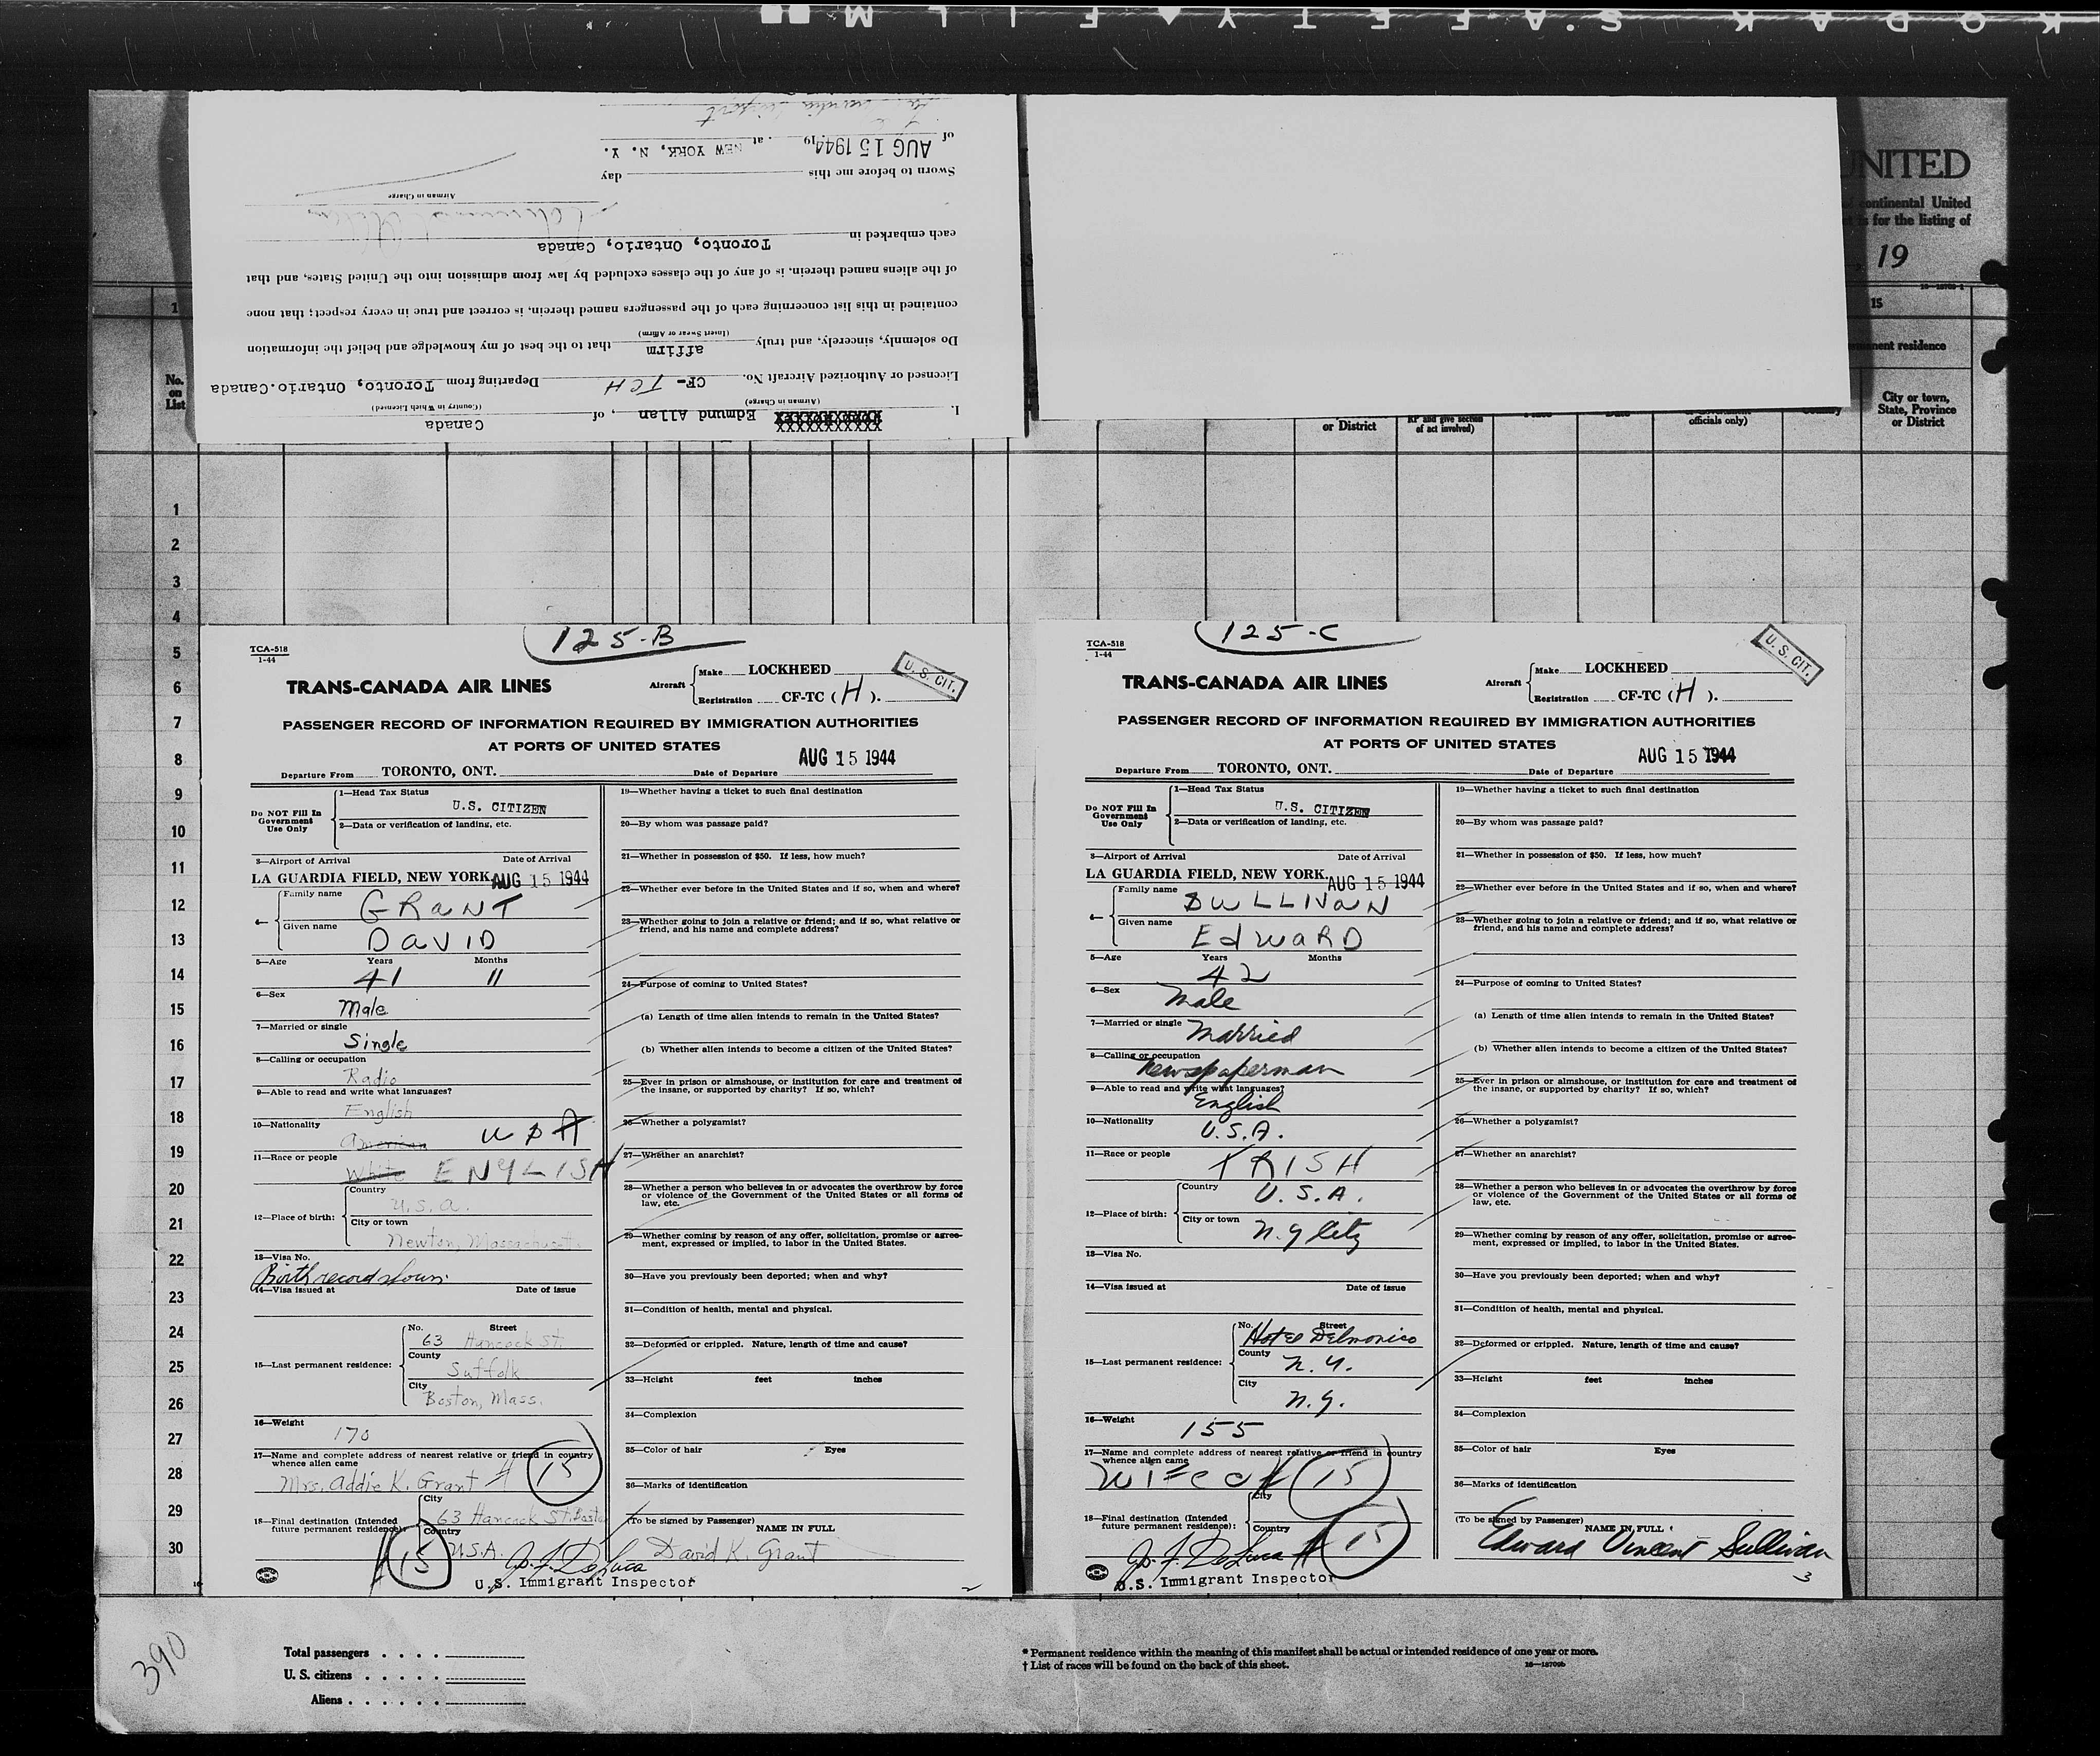 KODAK SAFETY FILM
of
AUG 15 1944 19 , at NEW YORK, N. Y.
Sworn to before me this day
Airman in Charge
each embarked in Toronto, Ontario, Canada
of the aliens named therein, is of any of the classes excluded by law from admission into the United States, and that
contained in this list concerning each of the passengers named therein, is correct and true in every respect; that none
(Insert Swear or Affirm)
Do solemnly, sincerely, and truly affirm that to the best of my knowledge and belief the information
Licensed or Authorized Aircraft No. CF- TCH Departing from Toronto, Ontario.Canada
(Airman in Charge) (Country in Which Licensed)
I, Edmund Allan , of Canada
UNITED
continental United
is for the listing of
, 19
15
permanent residence
No. on List
or District
RP and give section
of act involved)
officials only)
Country
City or town,
State, Province
or District
1
2
3
4
5
6
7
8
9
10
11
12
13
14
15
16
17
18
19
20
21
22
23
24
25
26
27
28
29
30
125-B
TCA-518
1-44
TRANS-CANADA AIR LINES
Aircraft
Make LOCKHEED
Registration CF-TC (H).
U. S. CIT.
PASSENGER RECORD OF INFORMATION REQUIRED BY IMMIGRATION AUTHORITIES
AT PORTS OF UNITED STATES
AUG 15 1944
Departure From TORONTO, ONT. Date of Departure
Do NOT Fill In
Government
Use Only
1—Head Tax Status
U.S. CITIZEN
2—Data or verification of landing, etc.
3—Airport of Arrival Date of Arrival
LA GUARDIA FIELD, NEW YORK. AUG 15 1944
4—
Family name
GRANT
Given name
DAVID
5—Age Years Months
41 11
6—Sex
Male
7—Married or single
Single
8—Calling or occupation
Radio
9—Able to read and write what languages?
English
10—Nationality
American USA
11—Race or people
White ENGLISH
12—Place of birth:
Country
U.S.A.
City or town
Newton, Massachusetts
13—Visa No.
Birth record shown
14—Visa issued at Date of issue
15—Last permanent residence:
No. Street
63 Hancock St.
County
Suffolk
City
Boston, Mass.
16—Weight
170
17—Name and complete address of nearest relative or friend in country
whence alien came
Mrs. Addie K. Grant 15
18—Final destination (Intended
future permanent residence):
City
63 Hancock St. Boston
Country
U.S.A.
15
U.S. Immigrant Inspector
19—Whether having a ticket to such final destination
20—By whom was passage paid?
21—Whether in possession of $50. If less, how much?
22—Whether ever before in the United States and if so, when and where?
23—Whether going to join a relative or friend; and if so, what relative or
friend, and his name and complete address?
24—Purpose of coming to United States?
(a) Length of time alien intends to remain in the United States?
(b) Whether alien intends to become a citizen of the United States?
25—Ever in prison or almshouse, or institution for care and treatment of
the insane, or supported by charity? If so, which?
26—Whether a polygamist?
27—Whether an anarchist?
28—Whether a person who believes in or advocates the overthrow by force
or violence of the Government of the United States or all forms of
law, etc.
29—Whether coming by reason of any offer, solicitation, promise or agree-
ment, expressed or implied, to labor in the United States.
30—Have you previously been deported; when and why?
31—Condition of health, mental and physical.
32—Deformed or crippled. Nature, length of time and cause?
33—Height feet inches
34—Complexion
35—Color of hair Eyes
36—Marks of identification
(To be signed by Passenger) NAME IN FULL
David K. Grant
2
125-C
TCA-518
1-44
TRANS-CANADA AIR LINES
Aircraft
Make LOCKHEED
Registration CF-TC (H).
U. S. CIT.
PASSENGER RECORD OF INFORMATION REQUIRED BY IMMIGRATION AUTHORITIES
AT PORTS OF UNITED STATES
AUG 15 1944
Departure From TORONTO, ONT. Date of Departure
Do NOT Fill In
Government
Use Only
1—Head Tax Status
U.S. CITIZEN
2—Data or verification of landing, etc.
3—Airport of Arrival Date of Arrival
LA GUARDIA FIELD, NEW YORK. AUG 15 1944
4—
Family name
SULLIVAN
Given name
EDWARD
5—Age Years Months
42
6—Sex
Male
7—Married or single
Married
8—Calling or occupation
Newspaperman
9—Able to read and write what languages?
English
10—Nationality
U.S.A.
11—Race or people
IRISH
12—Place of birth:
Country
U.S.A.
City or town
N.Y City
13—Visa No.
14—Visa issued at Date of issue
15—Last permanent residence:
No. Street
Hotel Delmonico
County
N.Y.
City
N.Y.
16—Weight
155
17—Name and complete address of nearest relative or friend in country
whence alien came
WIFE 15
18—Final destination (Intended
future permanent residence):
City
Country
15
U.S. Immigrant Inspector
19—Whether having a ticket to such final destination
20—By whom was passage paid?
21—Whether in possession of $50. If less, how much?
22—Whether ever before in the United States and if so, when and where?
23—Whether going to join a relative or friend; and if so, what relative or
friend, and his name and complete address?
24—Purpose of coming to United States?
(a) Length of time alien intends to remain in the United States?
(b) Whether alien intends to become a citizen of the United States?
25—Ever in prison or almshouse, or institution for care and treatment of
the insane, or supported by charity? If so, which?
26—Whether a polygamist?
27—Whether an anarchist?
28—Whether a person who believes in or advocates the overthrow by force
or violence of the Government of the United States or all forms of
law, etc.
29—Whether coming by reason of any offer, solicitation, promise or agree-
ment, expressed or implied, to labor in the United States.
30—Have you previously been deported; when and why?
31—Condition of health, mental and physical.
32—Deformed or crippled. Nature, length of time and cause?
33—Height feet inches
34—Complexion
35—Color of hair Eyes
36—Marks of identification
(To be signed by Passenger) NAME IN FULL
Edward Vincent Sullivan
3
390
Total passengers . . . .
U. S. citizens . . . . .
Aliens . . . . . .
* Permanent residence within the meaning of this manifest shall be actual or intended residence of one year or more.
† List of races will be found on the back of this sheet.